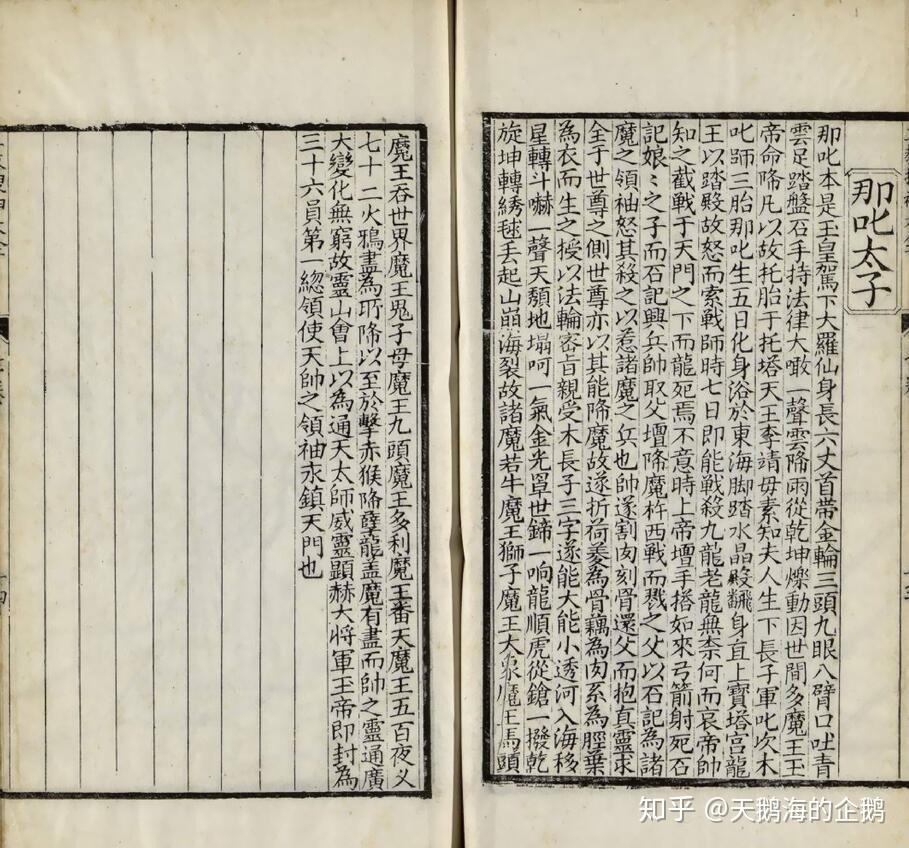 那叱太子
那叱本是玉皇駕下大羅仙身長六丈首帶金輪三頭九眼八臂口吐青
雲足踏盤石手持法律大噉一聲雲降雨從乾坤爍動因世間多魔王玉
帝命降凡以故托胎于托塔天王李靖毋素知夫人生下長子軍叱次木
叱師三胎那叱生五日化身浴於東海脚踏水晶殿飜身直上寶塔宮龍
王以踏殿故怒而索戰師時七日即能戰殺九龍老龍無柰何而哀帝帥
知之截戰于天門之下而龍死焉不意時上帝壇手搭如來弓箭射死石
記娘〻之子而石記興兵帥取父壇降魔杵西戰而戮之父以石記為諸
魔之領袖怒其殺之以惹諸魔之兵也帥遂割肉刻骨還父而抱真靈求
全于世尊之側世尊亦以其能降魔故遂折荷菱為骨藕為肉系為脛葉
為衣而生之授以法輪宻旨親受木長子三字遂能大能小透河入海移
星轉斗嚇一聲天頽地塌呵一氣金光罩世鍗一响龍順虎從鎗一撥乾
旋坤轉綉毬丟起山崩海裂故諸魔若牛魔王獅子魔王大象魔王馬頭
魔王吞世界魔王鬼子母魔王九頭魔王多利魔王番天魔王五百夜乂
七十二火鴉盡為所降以至於擊赤猴降孽龍盖魔有盡而帥之靈通廣
大變化無窮故靈山會上以為通天太師威靈顯赫大將軍玉帝即封為
三十六員第一緫領使天帥之領袖永鎮天門也
知乎 @天鹅海的企鹅